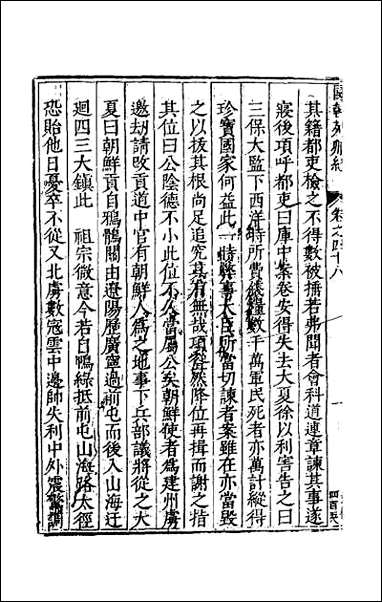 其籍都吏檢之不得數被撻若弗聞者會科道連章諫其事遂
寢後項呼都吏曰庫中案卷安得失去大夏徐以利害告之曰
三保大監下西洋時所費錢糧數千萬軍民死者亦萬計縱得
珍寶國家何益此一時弊事大臣所當切諫者案雖在亦當毀
之以拔其根尚足追究其有無哉項聳然降位再揖而謝之指
其位曰公陰德不小此位不久當屬公矣朝鮮使者為建州虜
邀劫請改貢道中官有朝鮮人為之地事下兵部議將從之大
夏曰朝鮮貢自鴉鶻關由遼陽歷廣寧過前屯而後入山海迂
迴四三大鎮此 祖宗微意今若自鴨綠抵前屯山海路太徑
恐貽他日憂卒不從又北虜數寇雲中邊師失利中外震驚
卷之四十八